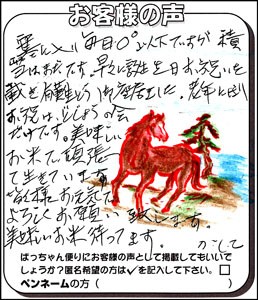 お客様の声
寒に入り毎日0°以下ですが積
雪はまだです。早々に誕生日お祝いを
戴き有難とう御座居ました。老年に
お祝は、
だけです。美味しい
お米で頑張っ
て生きています。
皆様お元気で
よろしくお願い致します。
美味しいお米待ってます。
ばっちゃん便りにお客様の声として掲載してもいいで
しょうか?匿名希望の方は✓を記入して下さい。□
ペンネームの方( )